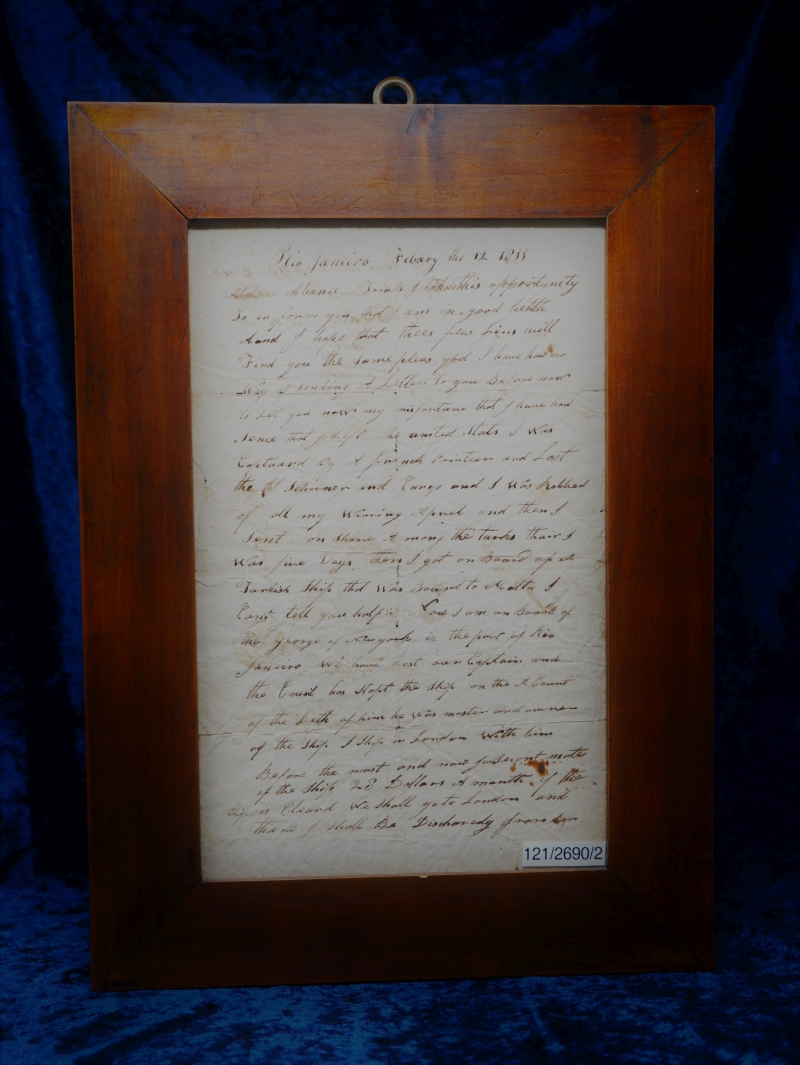 Rio Janeiro Febary the 12 1811
I take this opportunity
To in form you that I am in good helth
Aand I hope that thees few Lines will
Find you the same pleas god I have had no
Way of sending A Letter to you Before now
to Let you now my misfortune that I have had
sence that I Left the united Stats I Was
Captuard By A french Privatier and Lost
the Schooner and Cargo and I Was Robbed
of all my Wearing Aparel and then I
Sent on Shore A mong the turks thair I
Was five Days then I got on Board of A
Turkish Ship that Was Bound to Malta I
Cant tell you half Now I am on Board of
the George of Newyork in the port of Rio
Janeiro We have Lost ouer Captain and
the Cousil has Stopt the Ship on the A Count
of the Deth of him he Was master and owner
of the Ship I Ship in London With him
Before the mast and now mate
of the Ship 28 Dollars A month if the
Ship is Cleard We Shall go to London and
thare I shall Be from her
121/2690/2